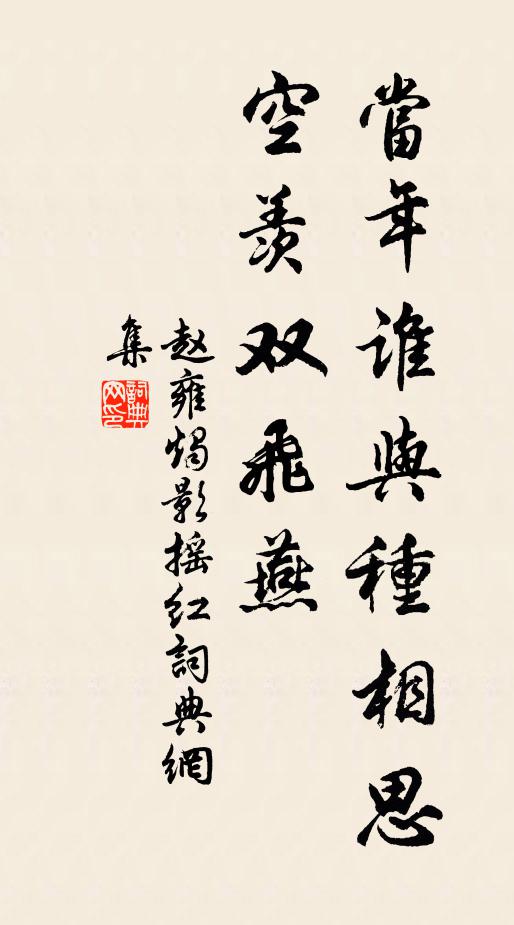 當年誰與種相思
空羨双飛燕
赵雍燭影摇红詞典網
集
詞典网印